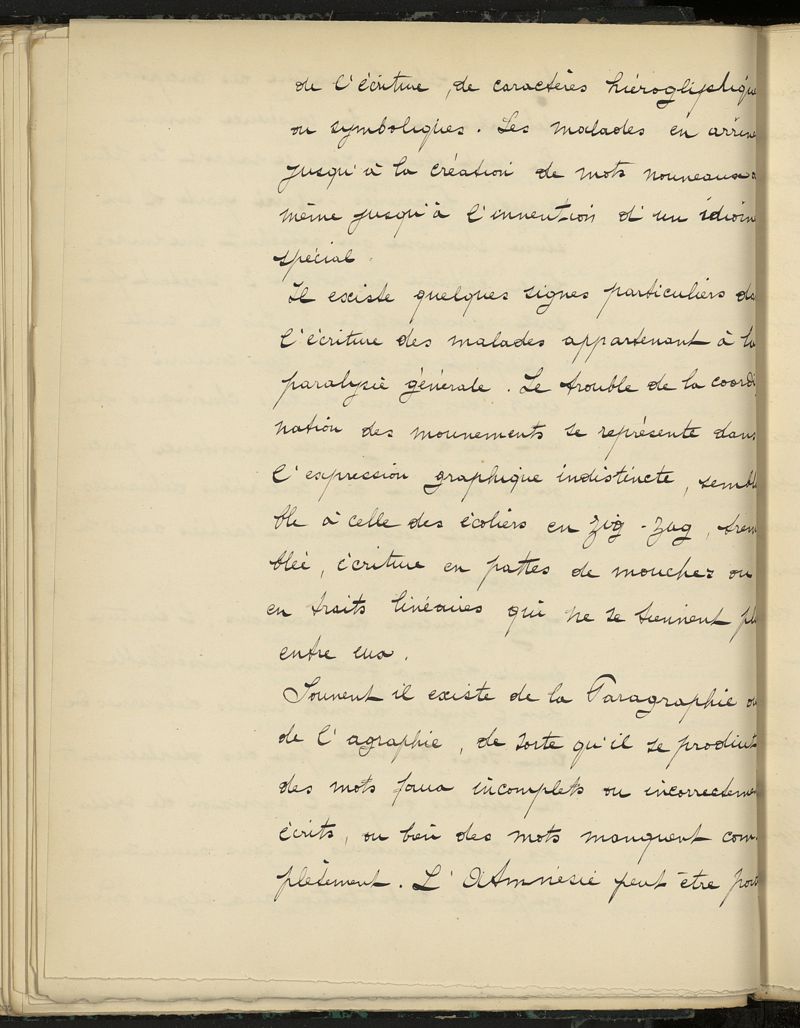 de l'écriture, de caractères hiérogliphique
ou symboliques. Les malades en arrive
jusqu'à la création de mots nouveaux
même jusqu'à l'invention d'un idiom
spécial.
Il existe quelques signes particuliers da
l'écriture des malades appartenant à la
paralysie générale. Le trouble de la coordi
nation des mouvements se représente dans
l'expression graphique indistincte, sembla
ble à celle des écoliers en zig-zag, trem
blée, écriture en pattes de mouches ou
en traits linéaires qui ne se tiennent pl
entre eux.
Souvent il existe de la Paragraphie ou
de l'agraphie, de sorte qu'il se produit
des mots faux incomplets ou incorrectemen
écrits, ou bien des mots manquent com-
plètement. L' Amnésie peut être